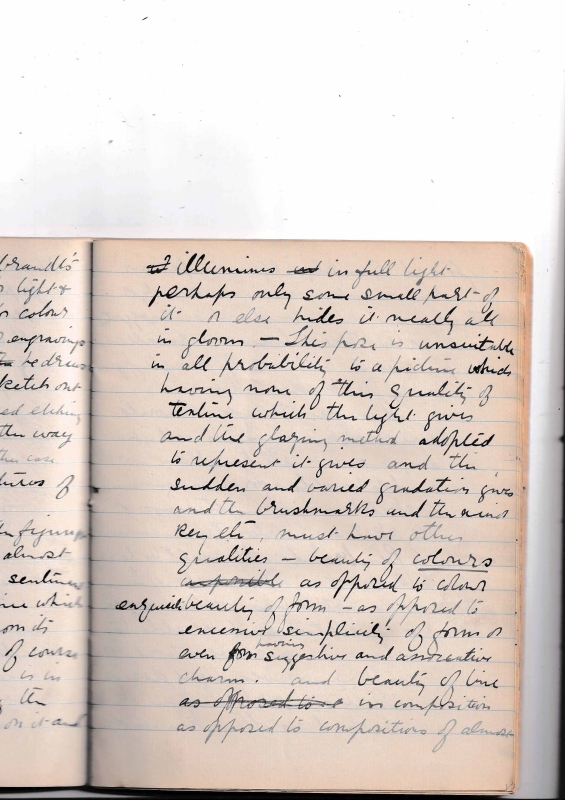 brandt's
light &
colour
engravings
he draws
sketch out
ed etching
the way
the case
of
figure
almost
sentim
which
on its
of course
is in
the
on it and
illumines in full light
perhaps only some small part of
it or else hides it nearly all
in gloom. — This pose is unsuitable
in all probability to a picture which
having none of this quality of
texture which the light gives
and the glazing method adopted
to represent it gives and the
sudden and varied gradation gives
and the brushmarks and the
key etc, must have other
qualities — beauty of colours
as opposed to colour
exquisite beauty of form — as opposed to
excessive simplicity of form or
even form having suggestive and associative
charm. and beauty of line
as opposed to in composition
as opposed to compositions of almost